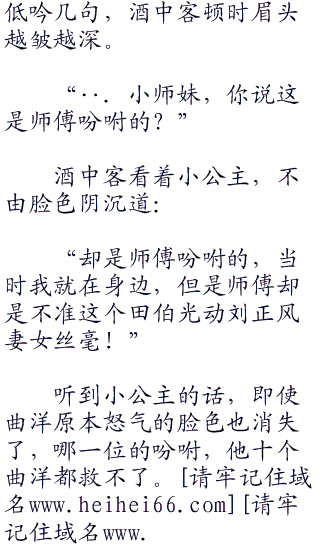 低吟几句，酒中客顿时眉头
越皱越深。
“··．小师妹，你说这
是师傅吩咐的？”
酒中客看着小公主，不
由脸色阴沉道：
“却是师傅吩咐的，当
时我就在身边，但是师傅却
是不准这个田伯光动刘正风
妻女丝毫！”
听到小公主的话，即使
曲洋原本怒气的脸色也消失
了，哪一位的吩咐，他十个
曲洋都救不了。[请牢记住域
名www.heihei66.com][请牢
记住域名www.